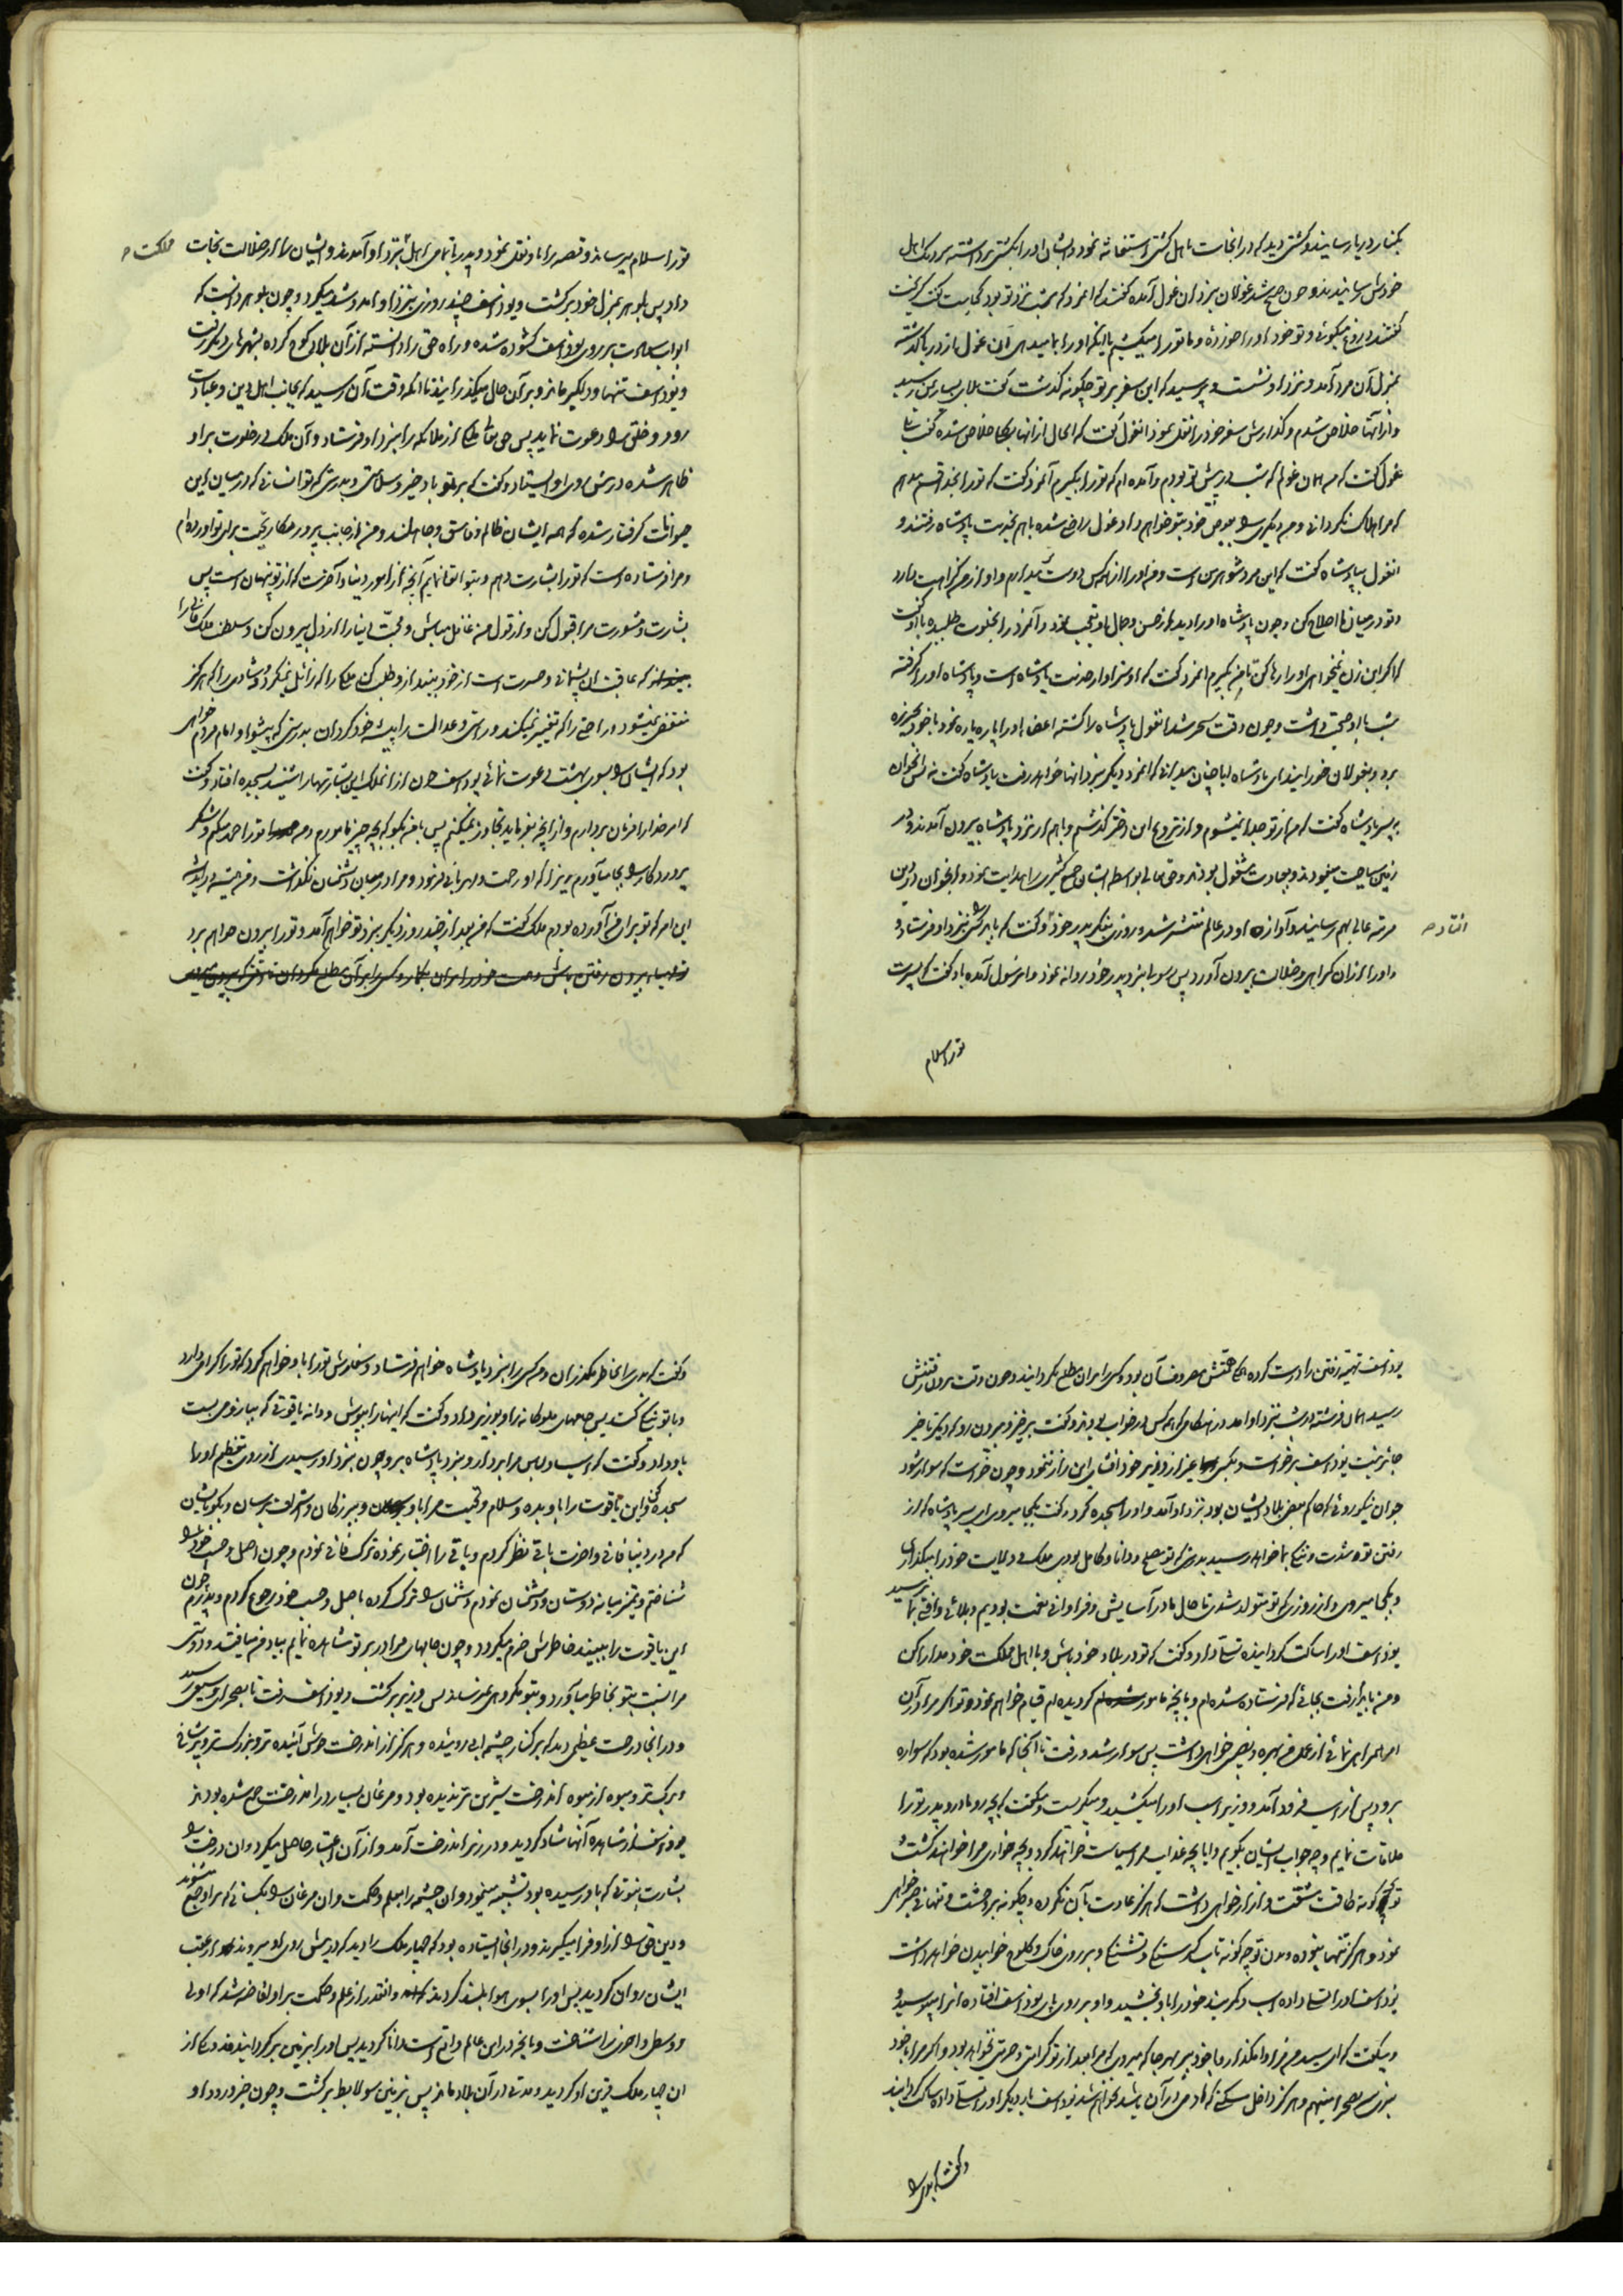 بکنار دریا رسانیدند و کشتی دید که در آنجاست باهل کشتی استغاثه نمود و ایشان او را بکشتی برداشته
خودش رسانیدند و چون صبح شد غولان نزد آن غول آمده گفتند که آنمرد که شب نزد تو بود کجاست گفت گریخت
گفتند دروغ میگوئی و تو خود او را خورده و ما تو را میکشیم یا اینکه او را بما میدهی آن غول از دریا گذشته
بمنزل آن مرد آمد و نزد او نشست و پرسید که این سفر بر تو چگونه گذشت گفت بلای بسیار بمن رسید
و از آنها خلاص شدم و گذارش سفر خود را نقل نمود آنغول گفت که الحال از آنها خلاص شده گفت بلی
غول گفت که من همان غولم که شب در پیش تو بودم و آمده ام که تو را بگیرم آنمرد گفت که تو را بخدا قسم میدهم
که مرا هلاک نگردانی و من دیگری را بعوض خود بتو خواهم داد غول راضی شده باهم بخدمت پادشاه رفتند و
آنغول بپادشاه گفت که این مرد شوهر من است و من او را از همه کس دوست میدارم و او از من کراهت دارد
و تو در میان ما اصلاح کن و چون پادشاه او را دید از حسن و جمال او تعجب نمود و آنمرد را بخلوت طلبیده باو گفت
که اگر این زن نمیخواهی او را رها کن تا من بگیرم آنمرد گفت که او سزاوار خدمت پادشاه است و پادشاه او را گرفته
شب با او صحبت داشت و چون وقت سحر شد آنغول پادشاه را کشته اعضاء او را پاره پاره نمود با خود بجزیره
برد و بغولان خورانید ای پادشاه آیا چنان میدانی که آنمرد دیگر نزد آنها خواهد رفت پادشاه گفت نه پس آنجوان
به پسر پادشاه گفت که من از تو جدا نمیشوم و از تزویج این دختر گذشتم و باهم از نزد پادشاه بیرون آمدند و در
زمین سیاحت مینمودند و بعبادت مشغول بودند و حق تعالی بواسطه ایشان جمع کثیری را هدایت نمود و آنجوان در دین
مرتبه عالی بهم رسانید و آوازه او در عالم منتشر شد و روزی بفکر پدر خود
افتاد
و او را از آن گمراهی و ضلالت بیرون آورد پس رسول را بنزد پدر خود روانه نمود و آن رسول آمده باو گفت که پسرت
تو را سلام
تو را سلام میرساند و قصه را باو نقل نمود و پدر با تمامی اهل بنزد او آمدند و ایشان را از ضلالت نجات
مملکت
داد پس بلوهر بمنزل خود برگشت و یوذاسف چند روزی بنزد او آمد و شد میکرد و چون بلوهر دانست که
ابواب سعادت بر روی یوذاسف گشوده شده و راه حق را دانسته از آن بلاد کوچ کرده بشهرهای دیگر رفت
و یوذاسف تنها و دلگیر ماند و بر آن حال میگذرانید تا آنکه وقت آن رسید که بجانب اهل دین و عبادت
رود و خلق را دعوت نماید پس حق تعالی ملکی از ملائکه را بنزد او فرستاد و آن ملک در خلوت بر او
ظاهر شده در پیش روی او ایستاد و گفت که بر تو باد خیر و سلامتی و بدرستی که تو انسانی که در میان این
حیوانات گرفتار شده که همه ایشان ظالم و فاسق و جاهلند و من از جانب پروردگار تحیت برای تو آورده ام
و مرا فرستاده است که تو را بشارت دهم و بتو القا نمایم آنچه از امور دنیا و آخرت که از تو پنهان است پس
بشارت و مشورت مرا قبول کن و از قول من غافل مباش و محبت دنیا را از دل بیرون کن و سلطنت ملک فانی را
که عاقبت آن پشیمانی و حسرت است از خود بیند از و طلب کن ملکی را که زائل نمیگردد و شادی را که هرگز
منقضی نمیشود و راحتی را که تغییر نمیکند و راستی و عدالت را پیشه خود گردان بدرستی که پیشوا و امام مردم خواهی
بود که ایشان را بسوی بهشت دعوت نمائی یوذاسف چون از آن ملک این بشارتها را شنید بسجده افتاد و گفت
که امر خدا را فرمان بردارم و از آنچه بفرماید تجاوز نمیکنم پس با من بگو که بچه چیز مامورم و من تو را حمد میکنم و شکر
پروردگار را بجا میآورم زیرا که او رحمت و مهربانی فرمود و مرا در میان دشمنان نگذاشت
این امر که تو برای من آورده بودم ملک گفت که من بعد از چند روز دیگر بنزد تو خواهم آمد و تو را بیرون خواهم برد
یوذاسف تهیه رفتن را درست کرده همگی همتش مصروف آن بود و کسی را بر آن مطلع نگردانید و چون وقت بیرون رفتنش
رسید همان فرشته در شب بنزد او آمد در هنگامی که همه کس در خواب بودند و گفت برخیز و بیرون رو که دیگر تاخیر
جائز نیست یوذاسف برخاست و بکسی غیر از وزیر خود افشای این راز ننمود و چون خواست که سوار شود
جوان نیکو روئی که حاکم بعضی بلاد ایشان بود نزد او آمد و او را سجده کرد و گفت بکجا میروی ای پسر پادشاه که از
رفتن تو شدت و تنگی بما خواهد رسید بدرستی که تو مصلح و دانا و کامل بودی ملک و ولایت خود را میگذاری
و بکجا میروی و از روزی که تو متولد شدی تا حال ما در آسایش و فراوانی نعمت بودیم و بلائی و آفتی بما نرسید
یوذاسف او را ساکت گردانیده تسلی داد و گفت که تو در بلاد خود باش و با اهل مملکت خود مدارا کن
و من باید رفت بجائی که فرستاده شده ام و بآنچه مامور گردیده ام قیام خواهم نمود و تو اگر مرا در آن
امر همراهی نمائی از عمل من بهره و نصیبی خواهی داشت پس سوار شد و رفت تا آنجا که مامور شده بود که سواره
برود پس از اسب فرود آمد و وزیر اسب او را میکشید و میگریست و میگفت که بچه رو مادر و پدر تو را
ملاقات نمایم و چه جواب ایشان بگویم و آیا بچه عذاب مرا سیاست خواهند کرد و بچه خواری مرا خواهند کشت
تو چگونه طاقت مشقت و آزار خواهی داشت که هرگز عادت بآن نکرده و چگونه بر وحشت و تنهائی صبر خواهی
نمود و هرگز تنها نبوده و بدن تو چه گونه تاب گرسنگی و تشنگی و بر روی خاک و کلوخ خوابیدن خواهد داشت
یوذاسف او را تسلی داده اسب و کمربند خود را باو بخشید و او بر روی پای یوذاسف افتاده آنرا میبوسید و
میگفت که ای سید من مرا وامگذار و با خود ببر بهر جا که میروی که مرا بعد از تو کرامتی و حرمتی نخواهد بود و اگر مرا با خود
نبری سر بصحرا مینهم و هرگز داخل مسکنی که آدمی در آن باشد نخواهم شد یوذاسف بار دیگر او را تسلی داده ساکت گردانید
و گفت که
و گفت که بدی را بخاطر مگذران و من کسی را بنزد پادشاه خواهم فرستاد و سفارش تو را باو خواهم کرد که تو را گرامی دارد
و با تو نیکی کند پس جامهای ملوکانه را بوزیر داد و گفت که اینها را بپوش و دانه یاقوتی که بسیار نفیس
باو داد و گفت که اسب و لباس مرا بردار و بنزد پادشاه برو چون بنزد او رسیدی از روی تعظیم او را
سجده کن و این یاقوت را باو بده و سلام و تحیت مرا باو و ببزرگان و اشراف برسان و بگو بایشان
که من در دنیا فانی و آخرت باقی نظر کردم و باقی را اختیار نموده ترک فانی نمودم و چون اصل و حسب خود را
شناختم و تمیز میانه دوستان و دشمنان نمودم دشمنان را ترک کرده باصل و حسب خود رجوع کردم و پدرم چون
این یاقوت را ببیند خاطرش خرم میگردد و چون جامهای مرا در بر تو مشاهده نمایم بیاد من میافتد و دوستی
مرا نسبت بتو بخاطر میآورد و بتو مکروهی نمیرساند پس وزیر برگشت و یوذاسف رفت تا بصحرای وسیعی رسید
و در آنجا درخت عظیمی دید که بر کنار چشمه آبی روئیده و هرگز از آندرخت خوش آینده تر و بزرگتر
و میوه از میوه آندرخت شیرین تر ندیده بود و مرغان بسیار در آن درخت جمع شده بودند
یوذاسف از مشاهده آنها شاد گردید و در زیر آندرخت آمد و از آن اعتبار حاصل میکرد و آن درخت را
بشارت نبوتی که باو رسیده بود تشبیه مینمود و آن چشمه را بعلم و حکمت و آن مرغان را بکسانی که بر او جمع میشوند
و دین حق را از او فرا میگیرند و در آنجا ایستاده بود که چهار ملک را دید که در پیش روی او میروند از عقب
ایشان روان گردید پس او را بسوی هوا بلند کردند و آنقدر از علم و حکمت بر او افاضه شد که اولی
و وسطی و اخری را شناخت و بآنچه در این عالم واقع است دانا گردید پس او را بزمین برگردانیدند و یکی از
آن چهار ملک قرین او گردید و مدتی در آن بلاد ماند پس بزمین سولابط برگشت و چون خبر ورود او